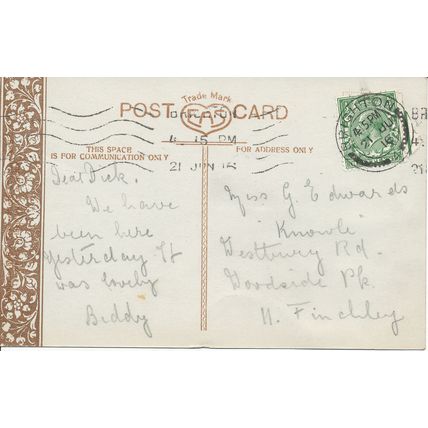 Trade Mark
POST CARD
THIS SPACE IS FOR COMMUNICATION ONLY
FOR ADDRESS ONLY
BRIGHTON
4 15 PM
21 JUN 16
BRIGHTON
4 15 PM
21 JU
16
Dear Dick.
We have
been here
yesterday It
was lovely
Biddy
Miss G. Edwards
"Knowle"
Westbury Rd.
Woodside Pk.
N. Finchley